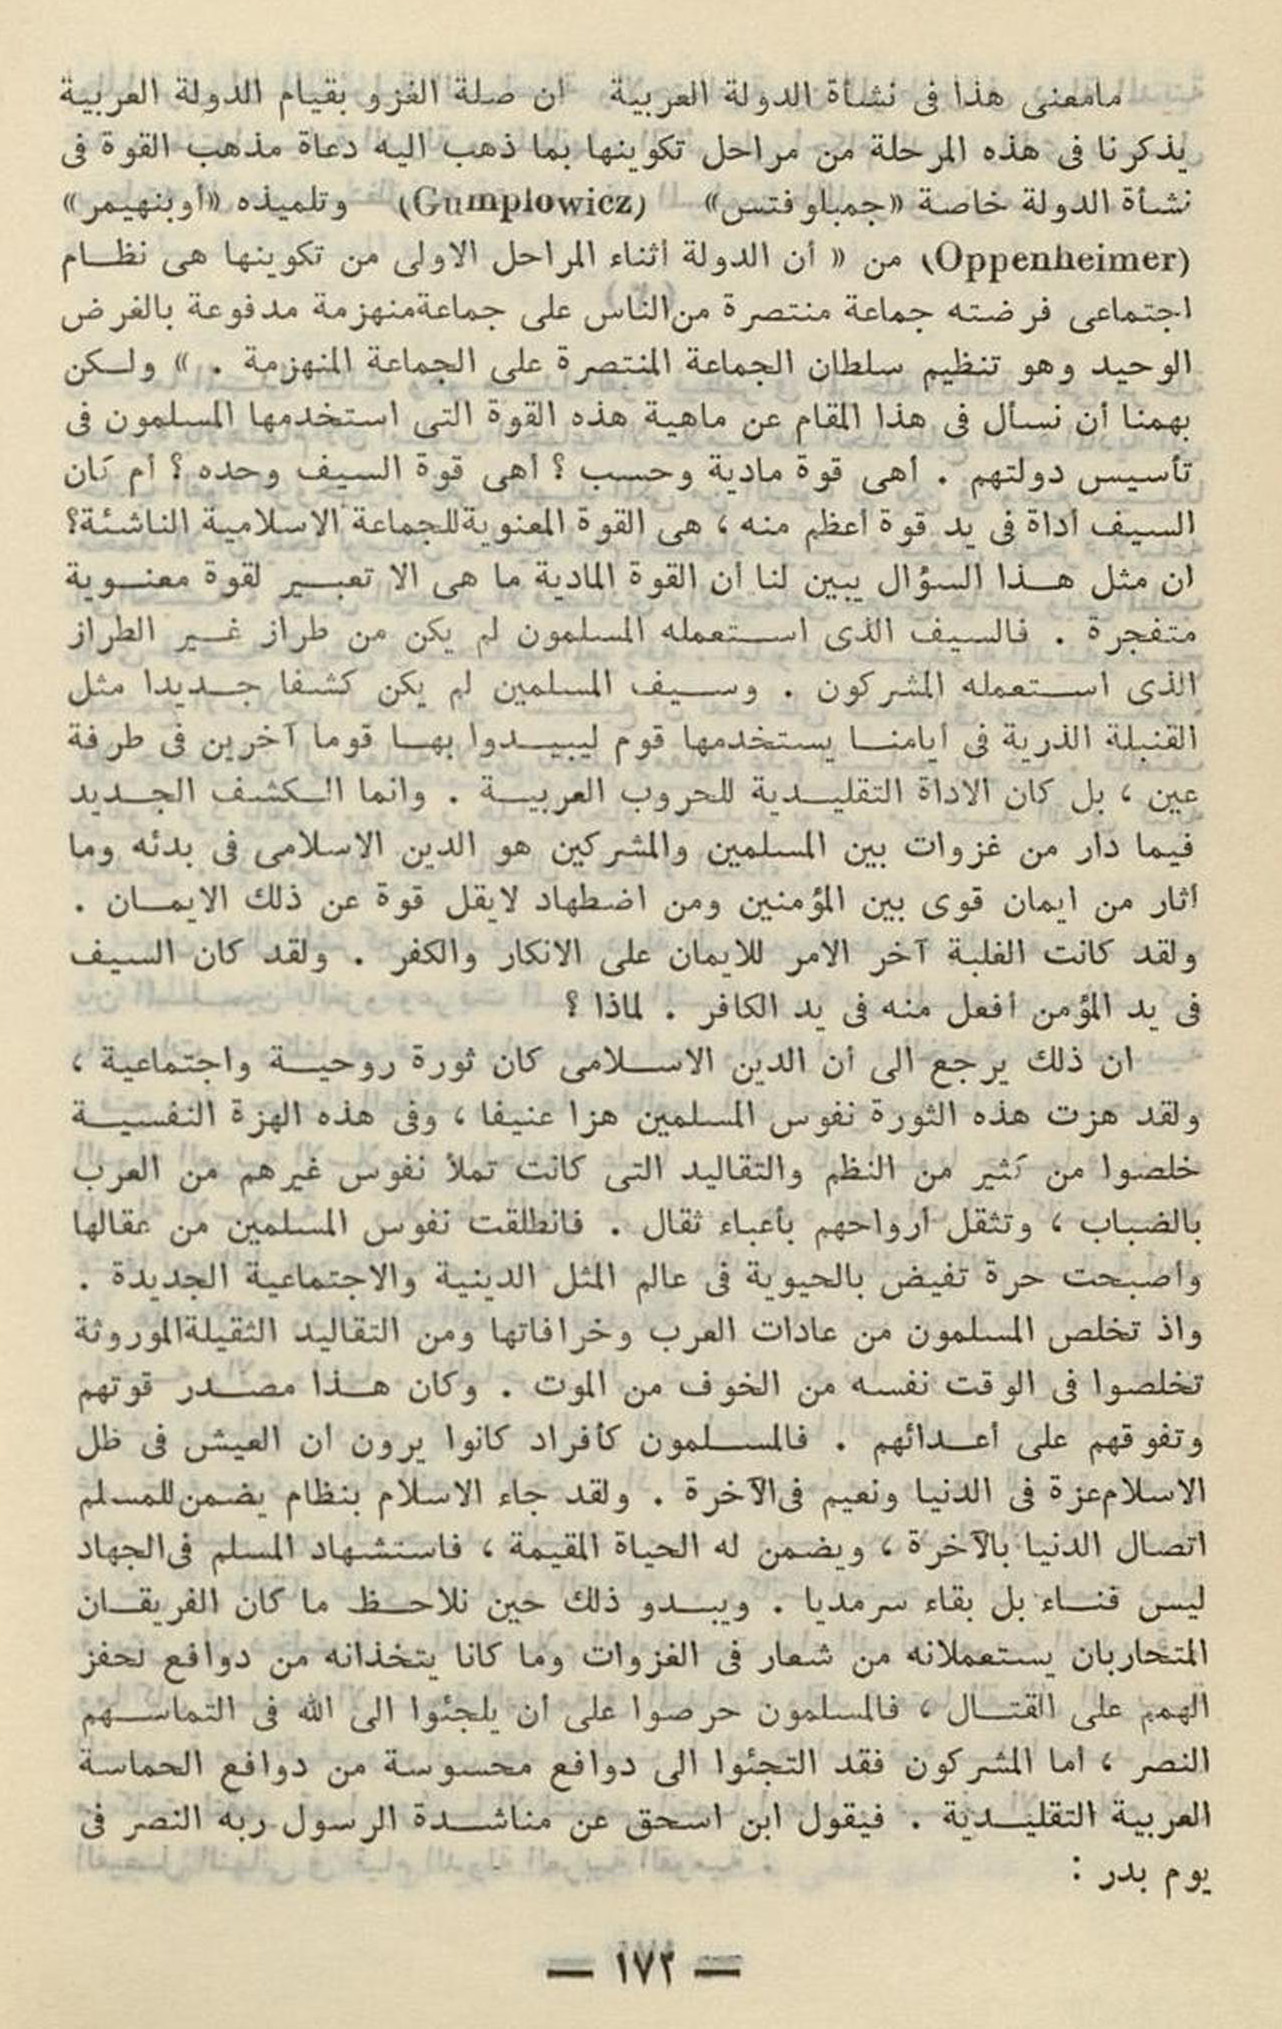 مامعنى هذا فى نشأة الدولة العربية ان صلة الغزو بقيام الدولة العربية
يذكرنا فى هذه المرحلة من مراحل تكوينها بما ذهب اليه دعاة مذهب القوة فى
نشأة الدولة خاصة «جمبلوفتس» (Gumplowicz) وتلميذه «أوبنهيمر»
(Oppenheimer) من « أن الدولة أثناء المراحل الاولى من تكوينها هى نظــام
اجتماعى فرضته جماعة منتصرة من الناس على جماعة منهزمة مدفوعة بالغرض
الوحيد وهو تنظيم سلطان الجماعة المنتصرة على الجماعة المنهزمة . » ولـكن
بهمنا أن نسأل فى هذا المقام عن ماهية هذه القوة التى استخدمها المسلمون فى
تأسيس دولتهم . أهى قوة مادية وحسب ؟ أهى قوة السيف وحده ؟ أم كان
السيف أداة فى يد قوة أعظم منه ، هى القوة المعنوية للجماعة الاسلامية الناشئة؟
ان مثل هــذا السؤال يبين لنا أن القوة المادية ما هى الا تعبــير لقوة معنــوية
متفجرة . فالسيف الذى اســتعمله المسلمون لم يكن من طراز غــير الطراز
الذى اســتعمله المشركون . وســيف المسلمين لم يكن كشفا جــديدا مثل
القنبلة الذرية فى أيامنــا يستخدمها قوم ليبيــدوا بهــا قوما آخرين فى طرفة
عين ، بل كان الاداة التقليــدية للحروب العربيــة . وانما الـكشف الجــديد
فيما دار من غزوات بين المسلمين والمشركين هو الدين الاسلامى فى بدئه وما
أثار من ايمان قوى بين المؤمنين ومن اضطهاد لايقل قوة عن ذلك الايمــان .
ولقد كانت الغلبة آخر الامر للايمان على الانكار والكفر . ولقد كان السيف
فى يد المؤمن أفعل منه فى يد الكافر . لماذا ؟
ان ذلك يرجع الى أن الدين الاســلامى كان ثورة روحيــة واجتماعية ،
ولقد هزت هذه الثورة نفوس المسلمين هزا عنيفا ، وفى هذه الهزة النفسيــة
خلصوا من كثير من النظم والتقاليد التى كانت تملأ نفوس غيرهم من العرب
بالضباب ، وتثقل أرواحهم بأعباء ثقال . فانطلقت نفوس المسلمين من عقالها
وأصبحت حرة تفيض بالحيوية فى عالم المثل الدينية والاجتماعية الجديدة .
واذ تخلص المسلمون من عادات العرب وخرافاتها ومن التقاليد الثقيلة الموروثة
تخلصوا فى الوقت نفسه من الخوف من الموت . وكان هــذا مصــدر قوتهم
وتفوقهم على أعــدائهم . فالمســلمون كأفراد كانوا يرون أن العيش فى ظل
الاسلام عزة فى الدنيا ونعيم فى الآخرة . ولقد جاء الاسلام بنظام يضمن للمسلم
اتصال الدنيا بالآخرة ، ويضمن له الحياة المقيمة ، فاستشهاد المسلم فى الجهاد
ليس فنــاء بل بقاء سرمديا . ويبــدو ذلك حين نلاحــظ ما كان الفريقــان
المتحاربان يستعملانه من شعار فى الغزوات وما كانا يتخذانه من دوافع تحفز
الهمم على القتــال ، فالمسلمون حرصوا على أن يلجئوا الى الله فى التماســهم
النصر ، أما المشركون فقد التجئوا الى دوافع محسوسة من دوافع الحماسة
العربية التقليــدية . فيقول ابن اسحق عن مناشــدة الرسول ربه النصر فى
يوم بدر :
— ١٧٢ —